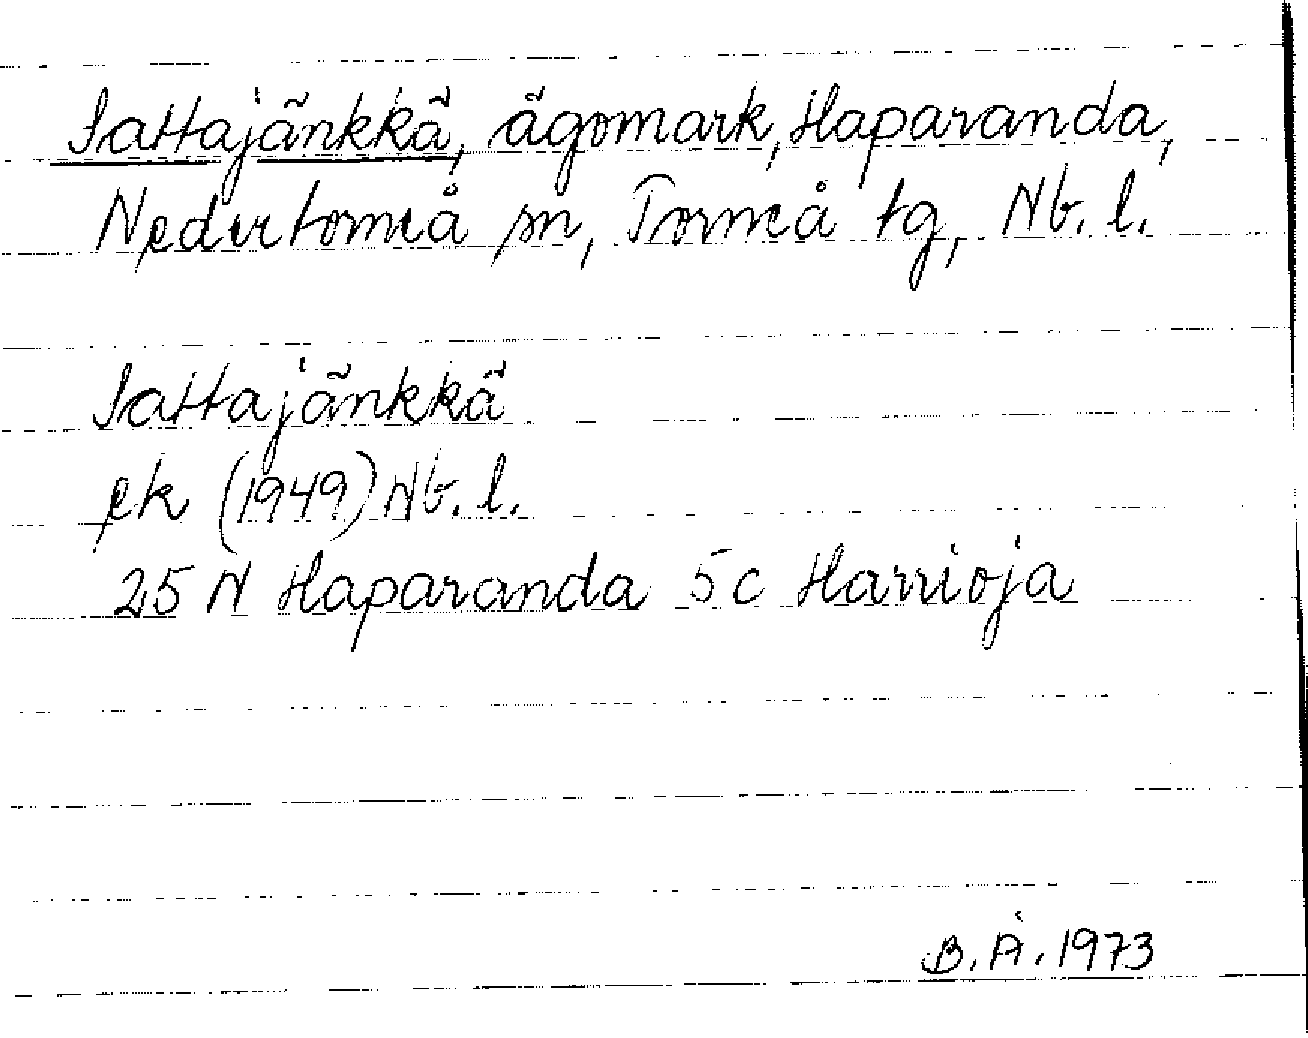 Sattajänkkä, ägomark, Haparanda,
Nedertorneå sn, Torneå tg, Nb. l.
Sattajänkkä
ek (1949) Nb. l.
25 N Haparanda 5 c Harrioja
B. Å. 1973